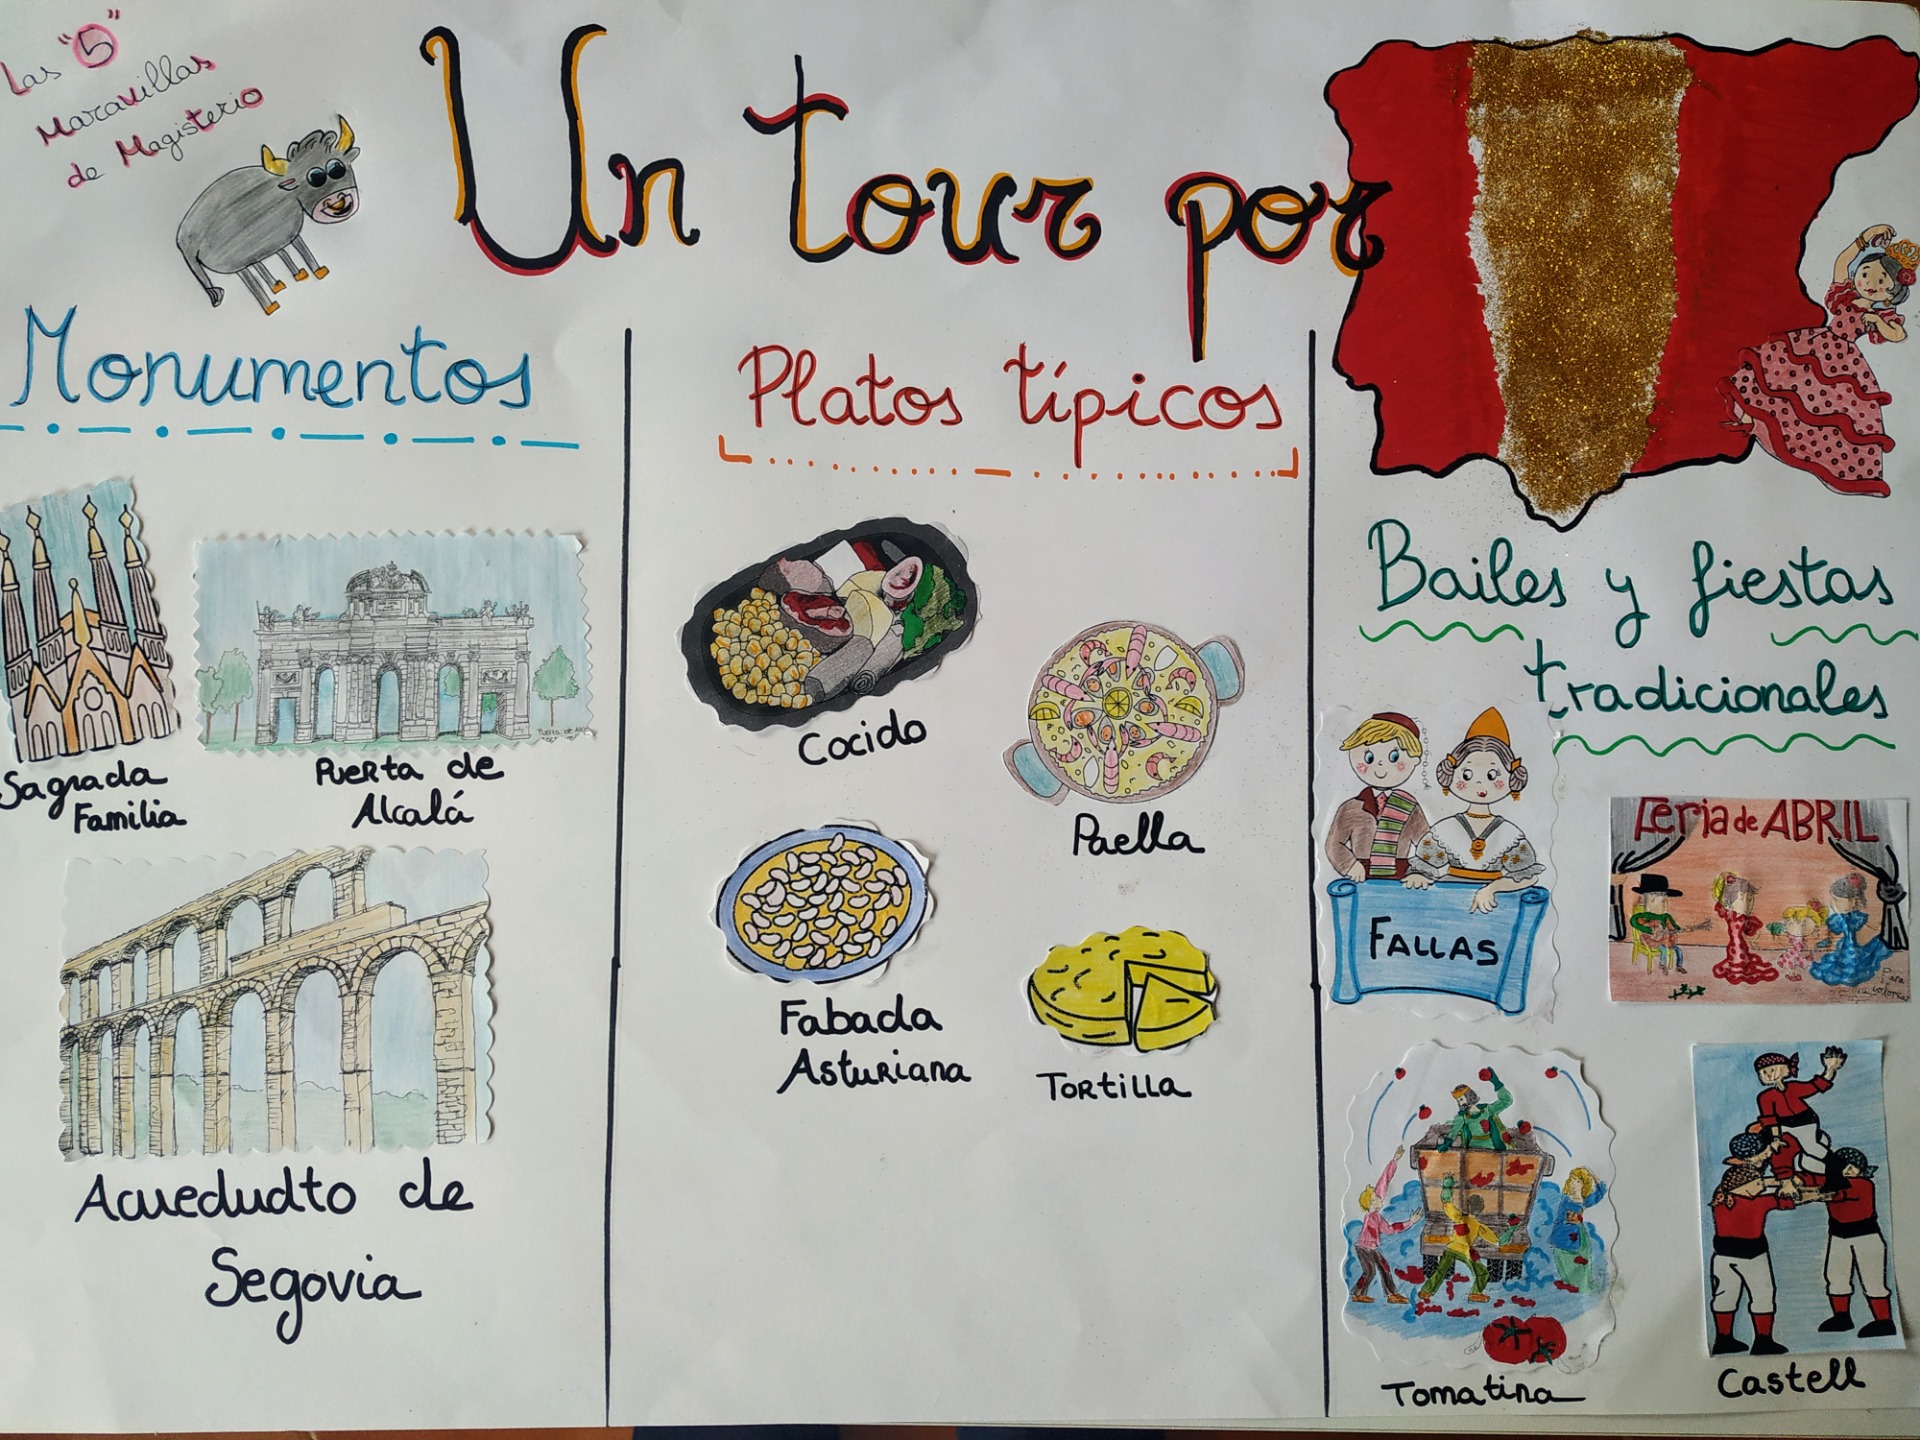 Las "5"
Maravillas
de Magisterio
Un tour por
Monumentos
Sagrada
Familia
Puerta de
Alcalá
Acuedudto de
Segovia
Platos típicos
Cocido
Paella
Fabada
Asturiana
Tortilla
Bailes y fiestas
tradicionales
FALLAS
Feria de ABRIL
Para
colorear
Tomatina
Castell